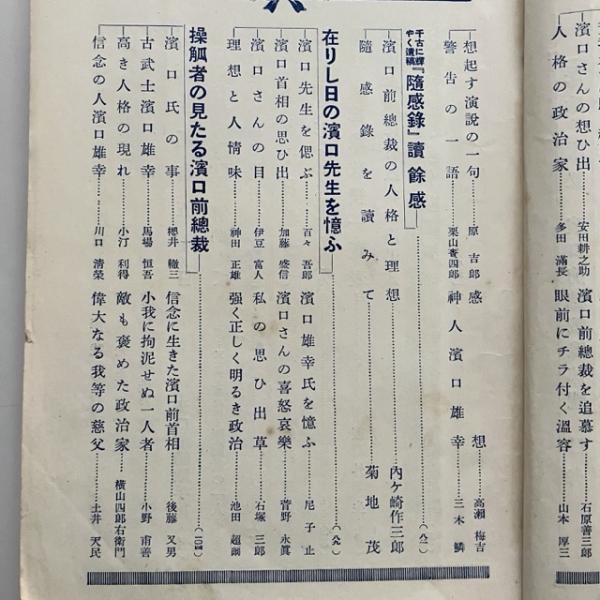 濱口さんの想ひ出………安田耕之助 濱口前總裁を追慕す………石原善三郎
人格の政治家………多田滿長 眼前にチラ付く溫容………山本厚三
想起す演說の一句………原吉郎 感想………高瀨梅吉
警告の一語………栗山賚四郎 神人濱口雄幸………三木鱗
千古に輝やく遺稿『隨感錄』讀餘感………(八二)
濱口前總裁の人格と理想………內ケ崎作三郎
隨感錄を讀みて………菊地茂
在りし日の濱口先生を憶ふ………(八九)
濱口先生を偲ぶ………百々吾郎 濱口雄幸氏を憶ふ………尾子止
濱口首相の思ひ出………加藤盛信 濱口さんの喜怒哀樂………菅野永眞
濱口さんの目………伊豆富人 私の思ひ出草………石塚三郎
理想と人情味………神田正雄 强く正しく明るき政治………池田超
操觚者の見たる濱口前總裁………(一〇四)
濱口氏の事………櫻井轍三 信念に生きた濱口前首相………後藤又男
古武士濱口雄幸………馬場恒吾 小我に拘泥せぬ一人者………小野甫善
高き人格の現れ………小汀利得 敵も褒めた政治家………橫山四郎右衞門
信念の人濱口雄幸………川口淸榮 偉大なる我等の慈父………土井天民